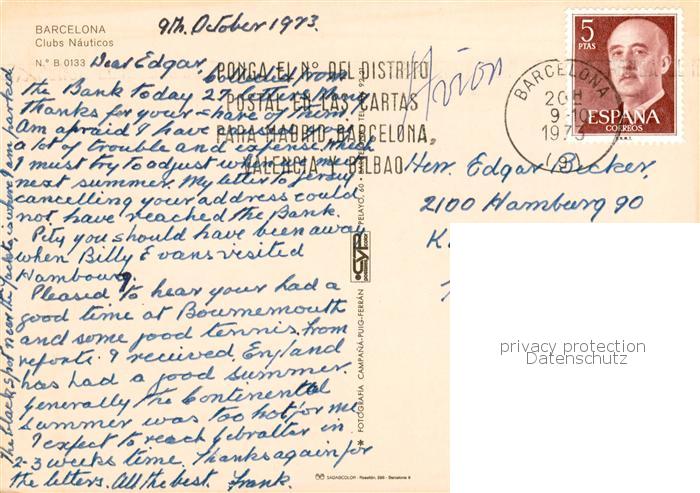 BARCELONA
Clubs Náuticos
N.º B 0133
9th. October 1973.
Dear Edgar,
Collected from
the Bank today 27 letters. Many
thanks for your share of them.
Am afraid I have caused you
a lot of trouble and expense which
I must try to adjust when we meet
next summer. My letter to Jersey
cancelling your address could
not have reached the Bank.
Pity you should have been away
when Billy Evans visited
Hambourg.
Pleased to hear your had a
good time at Bournemouth
and some good tennis. From
reports I received, England
has had a good summer.
Generally the Continental
summer was too hot for me.
I expect to reach Gibralter in
2-3 weeks time. Thanks again for
the letters. All the best. Frank.
The black spot near the Yachts, is where I am parked
PONGA EL Nº DEL DISTRITO
POSTAL EN LAS CARTAS
PARA MADRID BARCELONA,
VALENCIA Y BILBAO
Avion
BARCELONA
20H
9-10
1973
(9)
5
PTAS
ESPAÑA
CORREOS
F.N.M.T.
Herr. Edgar Becker.
2100 Hamburg 90
K
PELAYO, 60
CYP
FOTOGRAFÍA CAMPAÑÁ-PUIG-FERRÁN
SADAGCOLOR - Rosellón, 296 - Barcelona 9
privacy protection
Datenschutz